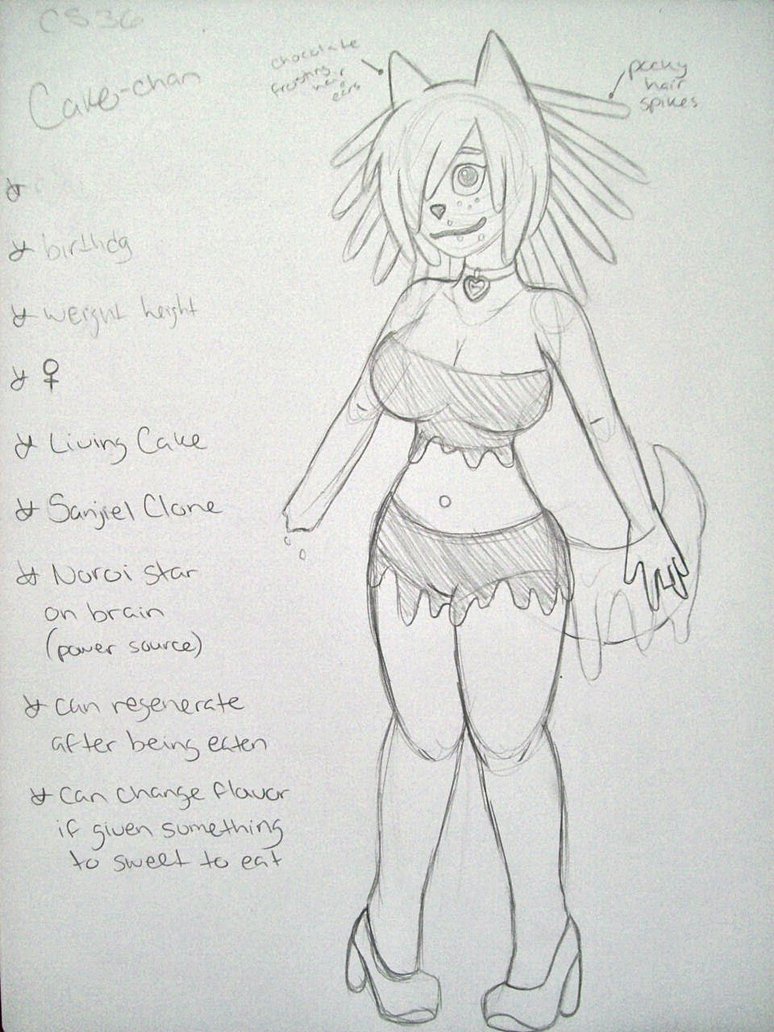 CS 36
Cake-chan
chocolate
frosting
hair
ears
pocky
hair
spikes
birthdg
weight height
♀
Living Cake
Sanjiel Clone
Noroi star
on brain
(power source)
can regenerate
after being eaten
Can change flavor
if given something
to sweet to eat